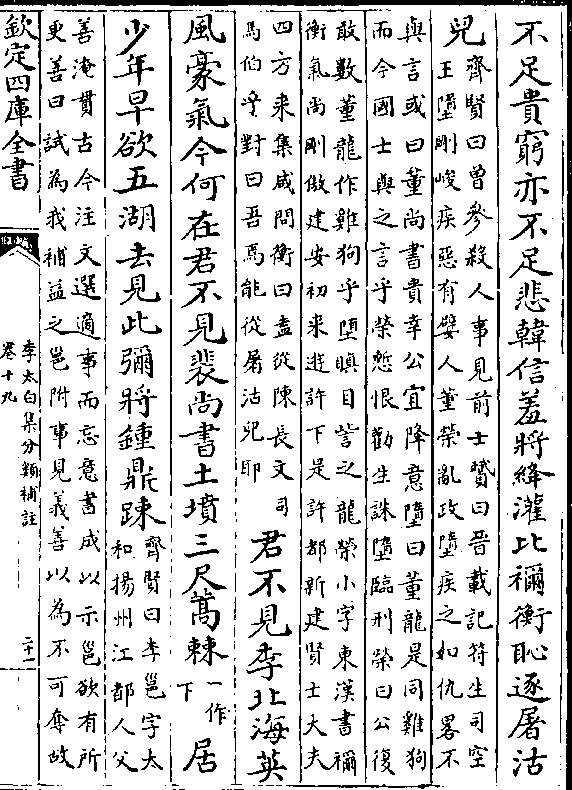 不足貴窮亦不足悲韓信羞將絳灌比禰衡恥逐屠沽
兒
齊賢曰曾參殺人事見前士贇曰晉載記符生司空
王墮剛峻疾惡有嬖人董榮亂政墮疾之如仇畧不
與言或曰董尚書貴幸公宜降意墮曰董龍是同雞狗
而令國士與之言乎榮慙恨勸生誅墮臨刑榮曰公復
敢數董龍作雞狗乎墮瞋目詈之龍榮小字東漢書禰
衡氣尚剛傲建安初来遊許下是許都新建賢士大夫
四方来集咸問衡曰盍從陳長文司
馬伯達對曰吾焉能從屠沽兒耶
君不見李北海英
風豪氣今何在君不見裴尚書土墳三尺蒿棘
一作
下
居
少年早欲五湖去見此彌將鍾鼎踈
齊賢曰李邕字太
和揚州江都人父
善淹貫古今注文選適事而忘意書成以示邕欲有所
更善曰試為我補益之邕附事見義善以為不可奪故
欽定四庫全書
李太白集分類補註
卷十九
二十一